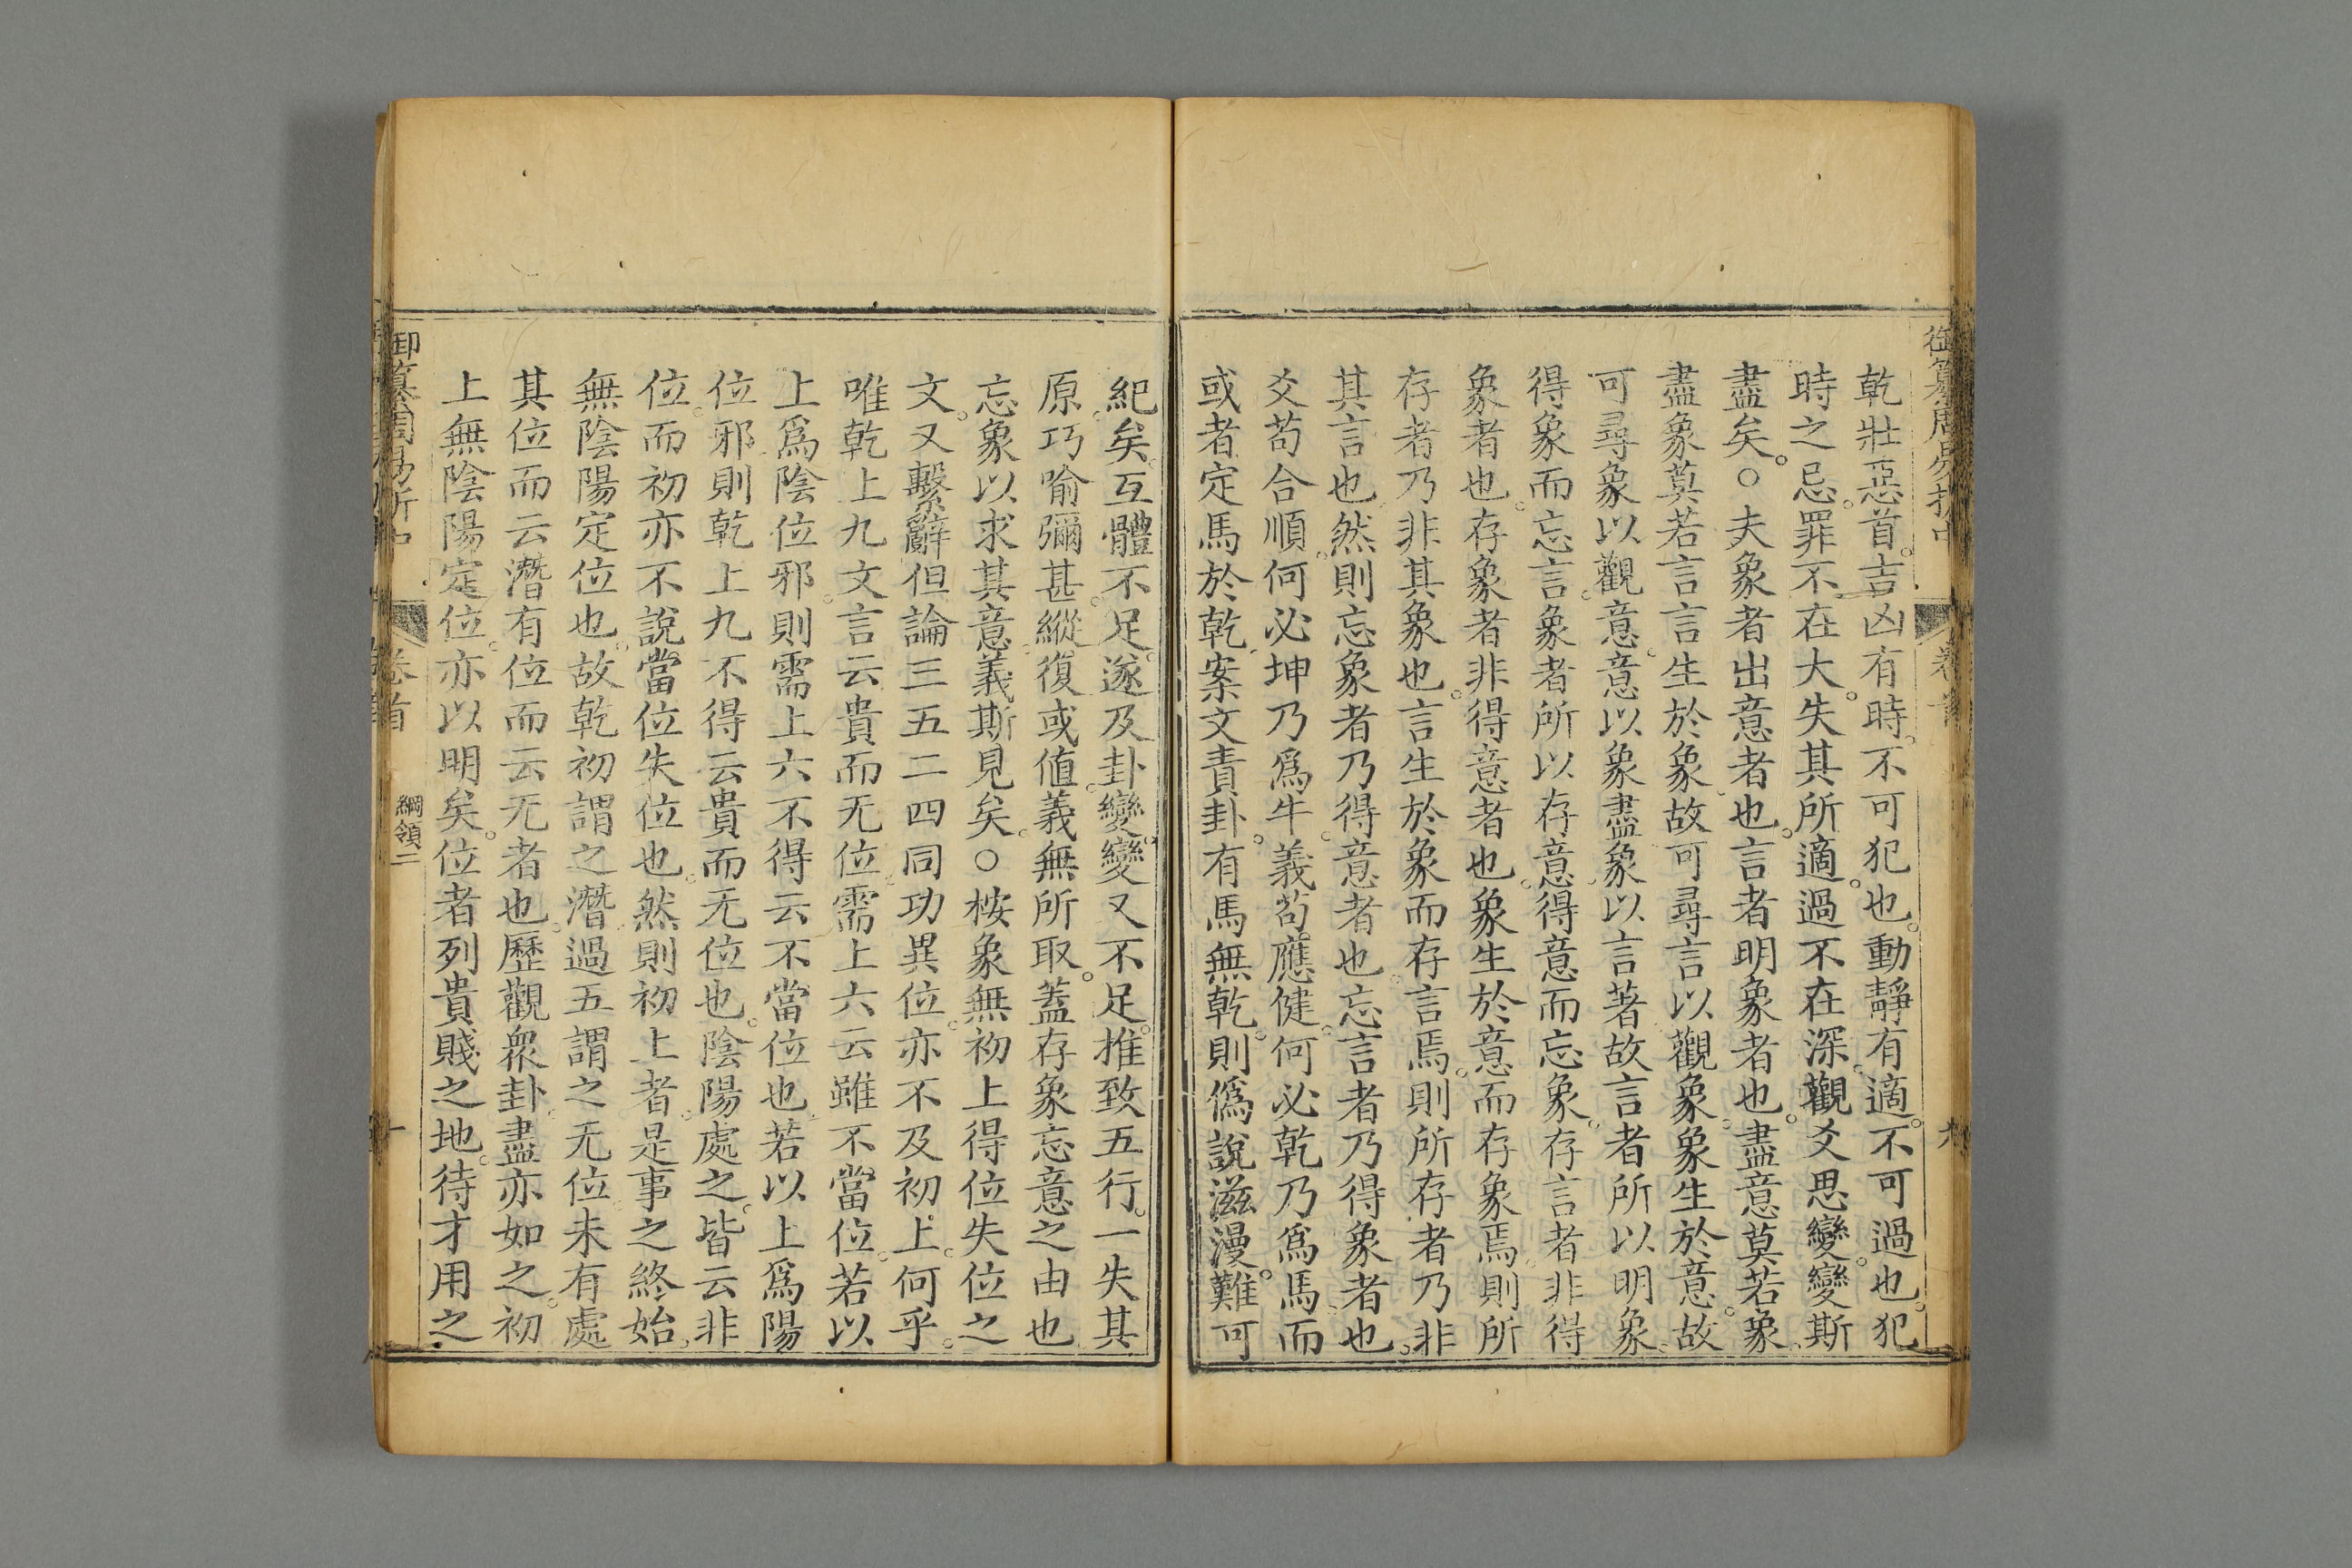 御纂周易折中
卷首
九
乾壯惡首。吉凶有時。不可犯也。動靜有適。不可過也。犯
時之忌。罪不在大。失其所適。過不在深。觀爻思變。變斯
盡矣。○夫象者出意者也。言者明象者也。盡意莫若象。
盡象莫若言。言生於象。故可尋言以觀象。象生於意。故
可尋象以觀意。意以象盡。象以言著。故言者所以明象。
得象而忘言。象者所以存意。得意而忘象。存言者非得
象者也。存象者非得意者也。象生於意而存象焉。則所
存者乃非其象也。言生於象而存言焉。則所存者乃非
其言也。然則忘象者乃得意者也。忘言者乃得象者也。
爻苟合順。何必坤乃爲牛。義苟應健。何必乾乃爲馬。而
或者定馬於乾。案文責卦。有馬無乾。則僞說滋漫。難可
紀矣。互體不足。遂及卦變。變又不足。推致五行。一失其
原。巧喻彌甚。縱復或値。義無所取。蓋存象忘意之由也
忘象以求其意。義斯見矣。○桉象無初上得位失位之
文。又繫辭但論三五二四同功異位。亦不及初上。何乎。
唯乾上九文言云貴而无位。需上六云雖不當位。若以
上爲陰位邪。則需上六不得云不當位也。若以上爲陽
位邪。則乾上九不得云貴而无位也。陰陽處之。皆云非
位。而初亦不說當位失位也。然則初上者。是事之終始。
無陰陽定位也。故乾初謂之潛。過五謂之无位。未有處
其位而云潛。有位而云无者也。歷觀衆卦。盡亦如之。初
上無陰陽定位。亦以明矣。位者列貴賤之地。待才用之
御纂周易折中
卷首
綱領二